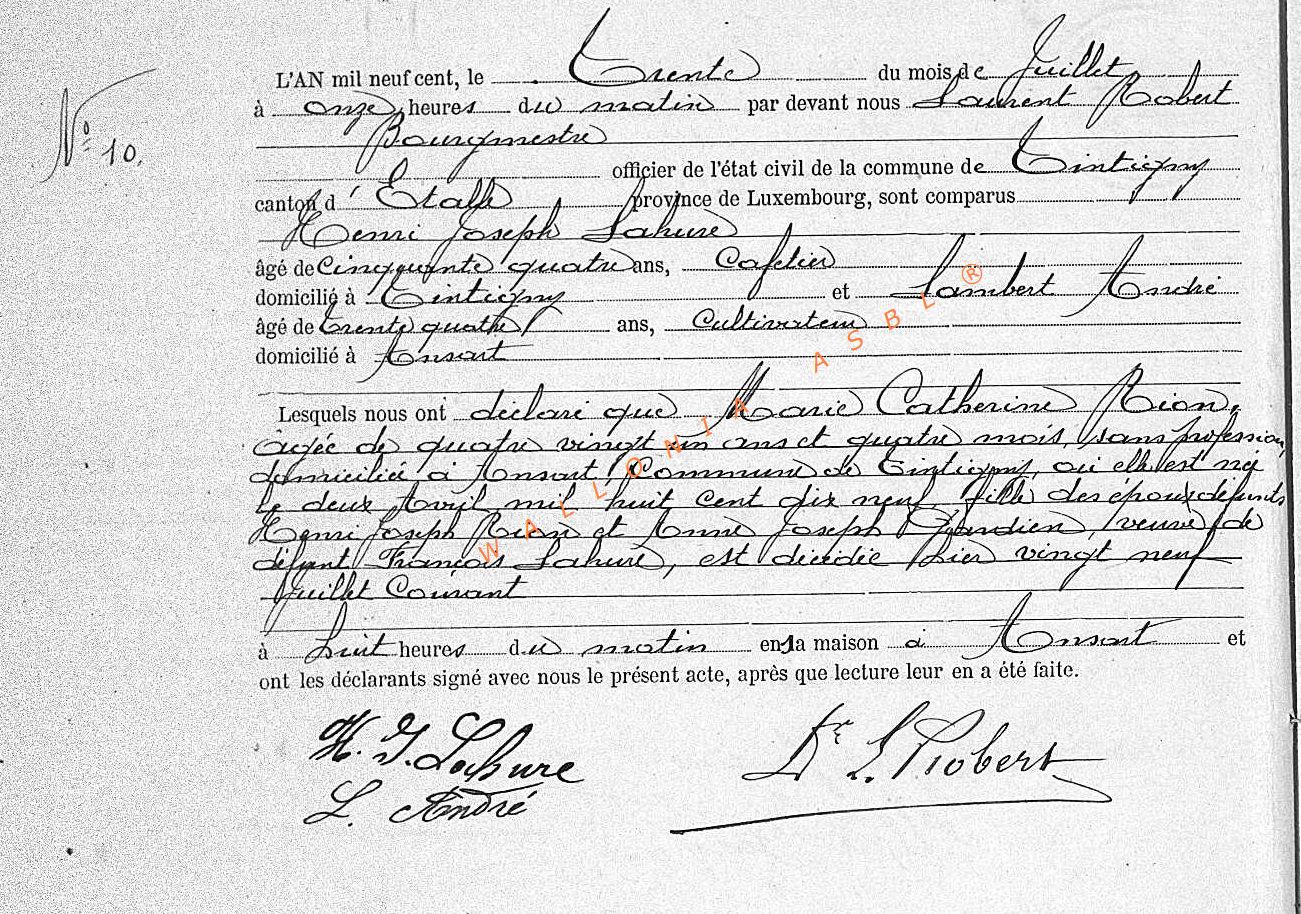 L'AN mil neuf cent, le Trente du mois de Juillet
à onze heures du matin par devant nous Laurent Robert
Bourgmestre
N° 10.
officier de l'état civil de la commune de Tintigny
canton d' Etalle province de Luxembourg, sont comparus
Henri Joseph Lahure
âgé de Cinquante quatre ans, Cafetier
domicilié à Tintigny et Lambert André
âgé de trente quatre ans, Cultivateur
domicilié à Ansart
Lesquels nous ont déclaré que Marie Catherine Rion,
agée de quatre vingt un ans et quatre mois, sans profession,
domiciliée à Ansart, Commune de Tintigny, où elle est née
le deux Avril mil huit cent dix neuf, fille des époux défunts
Henri Joseph Rion et Anne Joseph veuve de
défunt François Lahure, est décédée hier vingt neuf
Juillet Courant
à huit heures du matin en sa maison à Ansart et
ont les déclarants signé avec nous le présent acte, après que lecture leur en a été faite.
H. J. Lahure
L. André
Dr L. Robert
WALLONIA ASBL ®